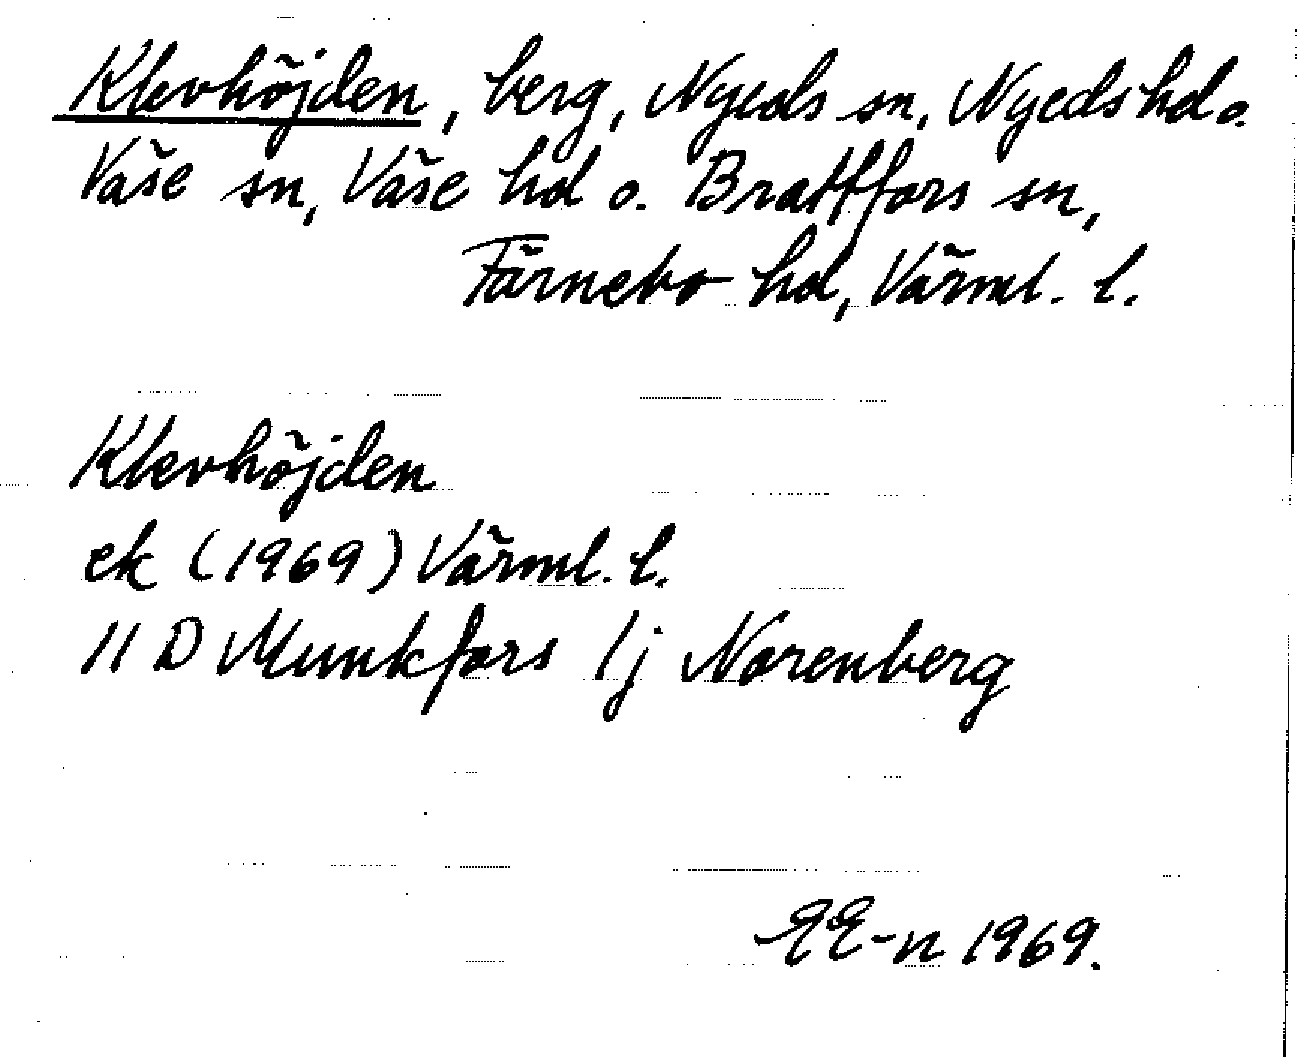 Klevhöjden, berg, Nyeds sn, Nyeds hd o.
Väse sn, Väse hd o. Brattfors sn,
Färnebo hd, Värml. l.
Klevhöjden
ek (1969) Värml. l.
11 D Munkfors 1j Norenberg
EE-n 1969.